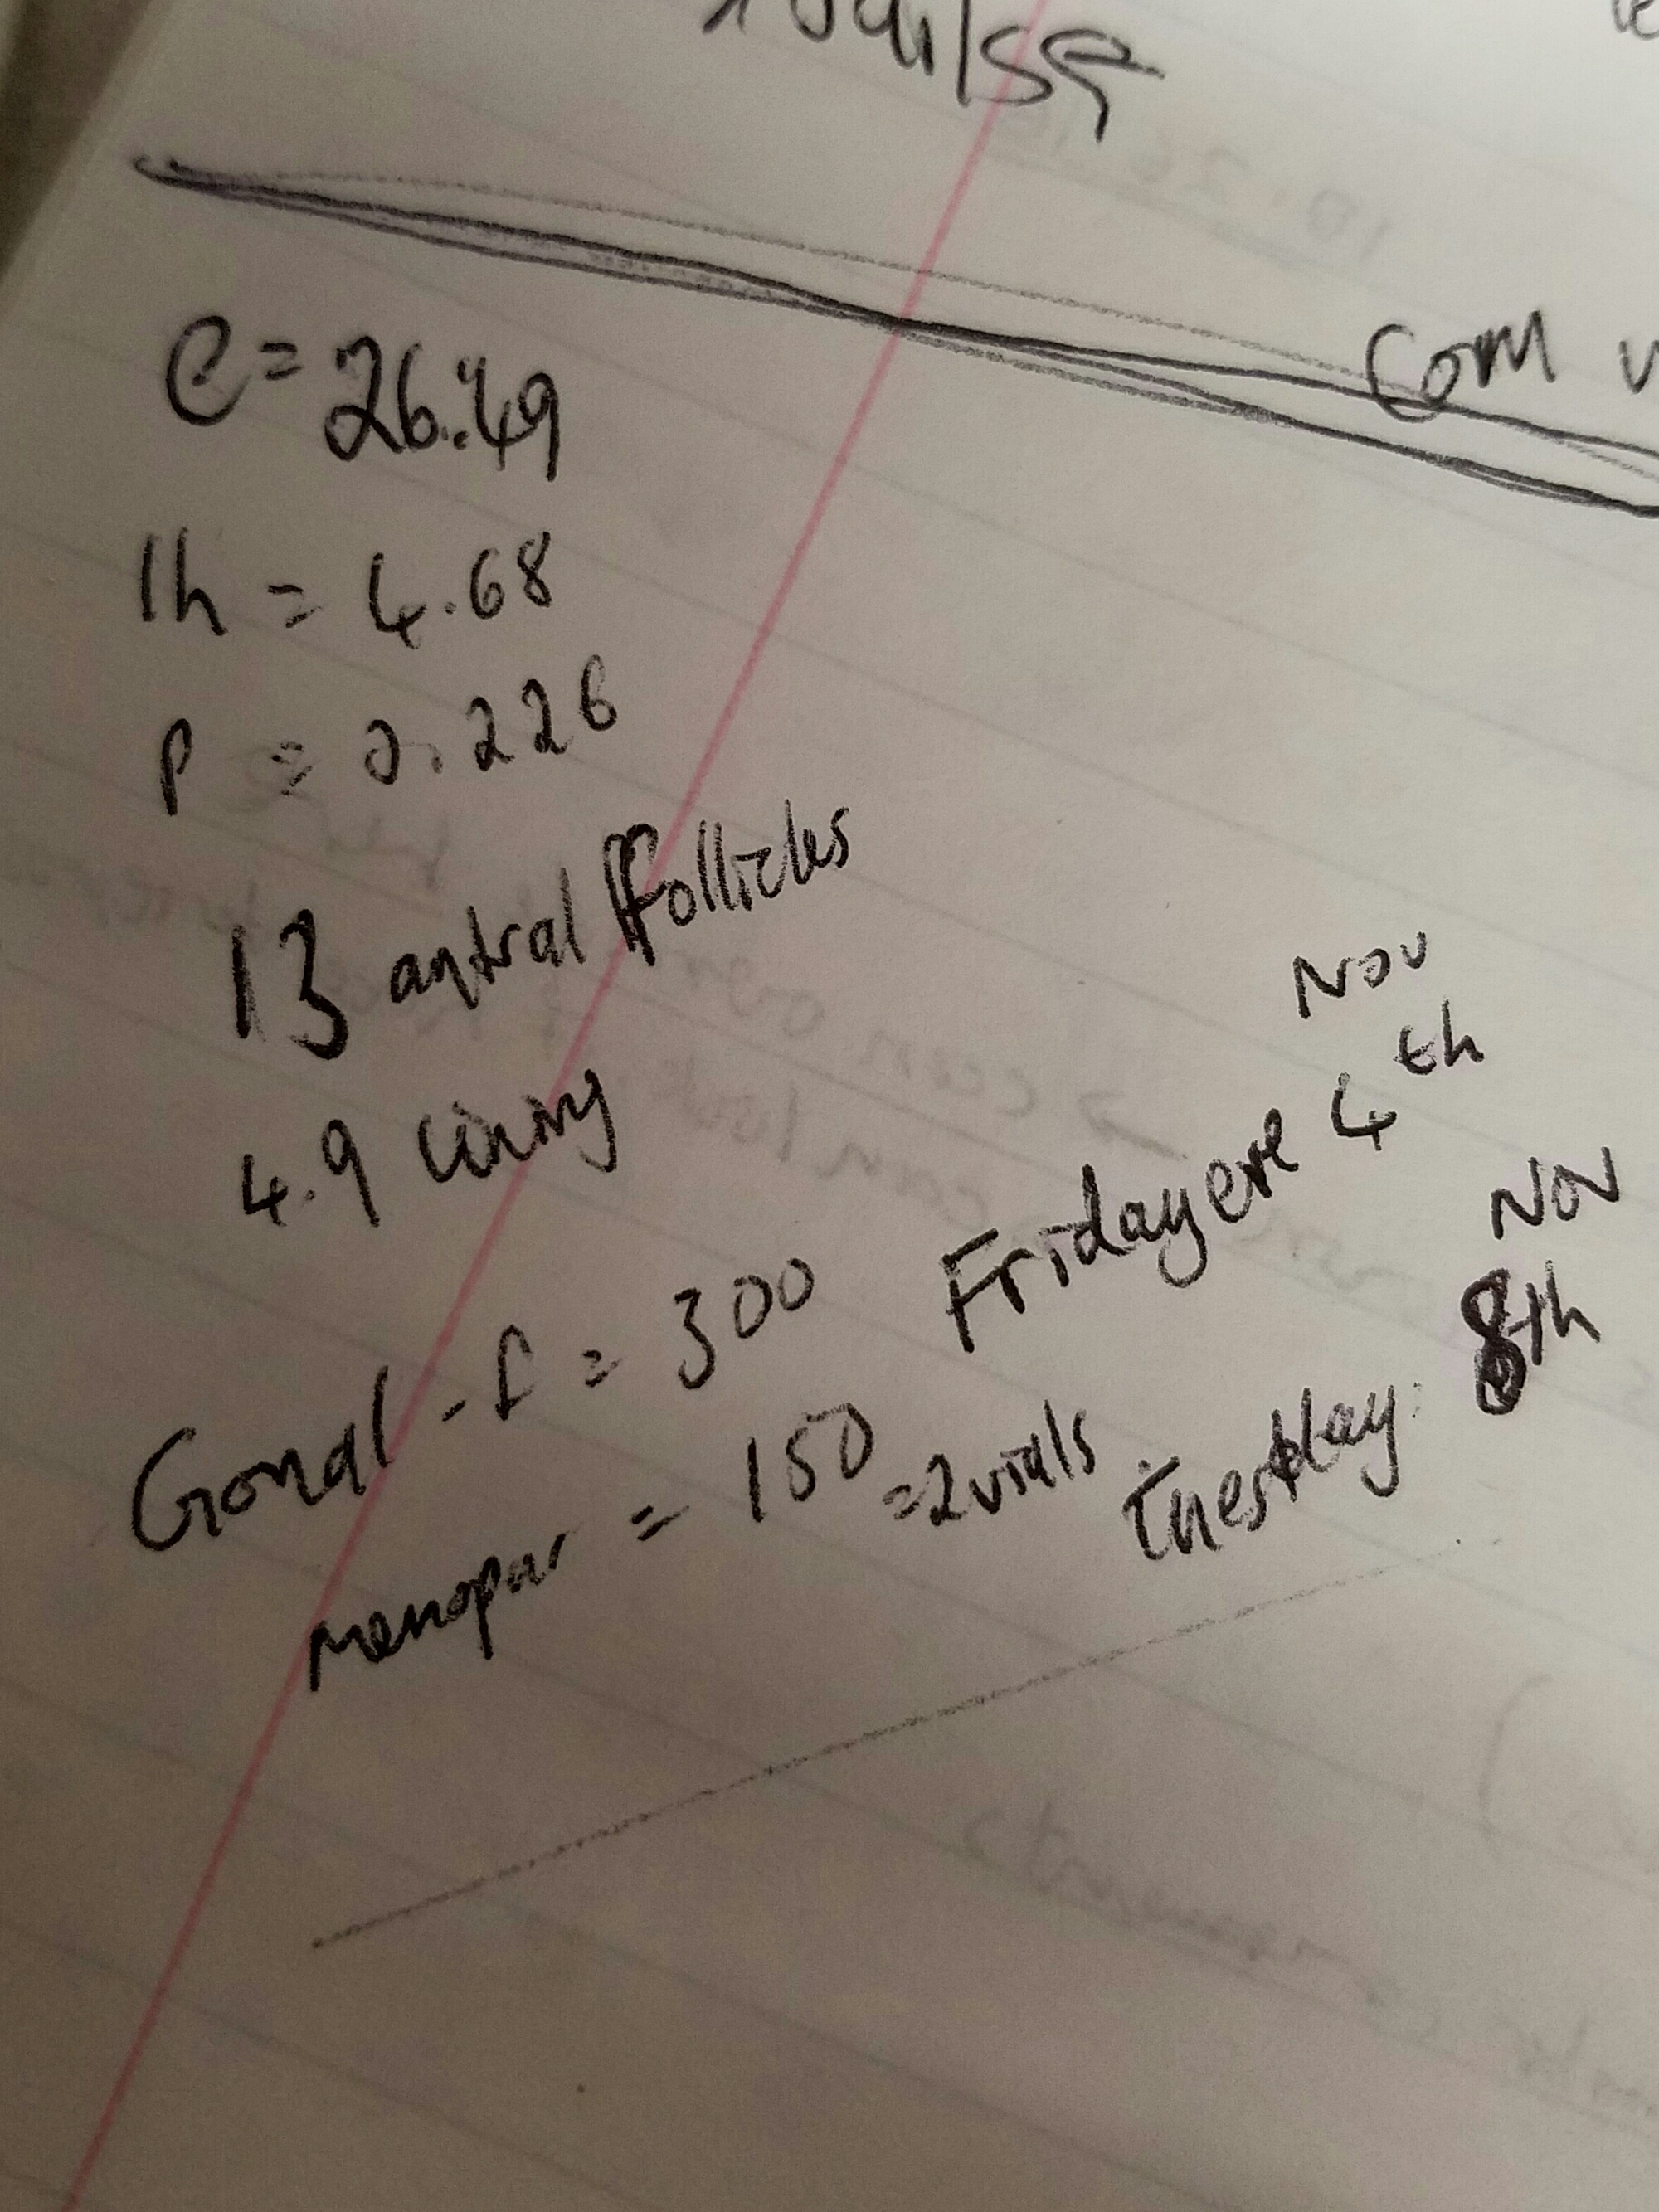 Com
e = 26.49
lh = 4.68
P = 0.226
13 antral follicles
4.9 lining
Gonal-f = 300 Friday eve 4th Nov
menopur = 150 = 2 vials Tuesday 8th Nov